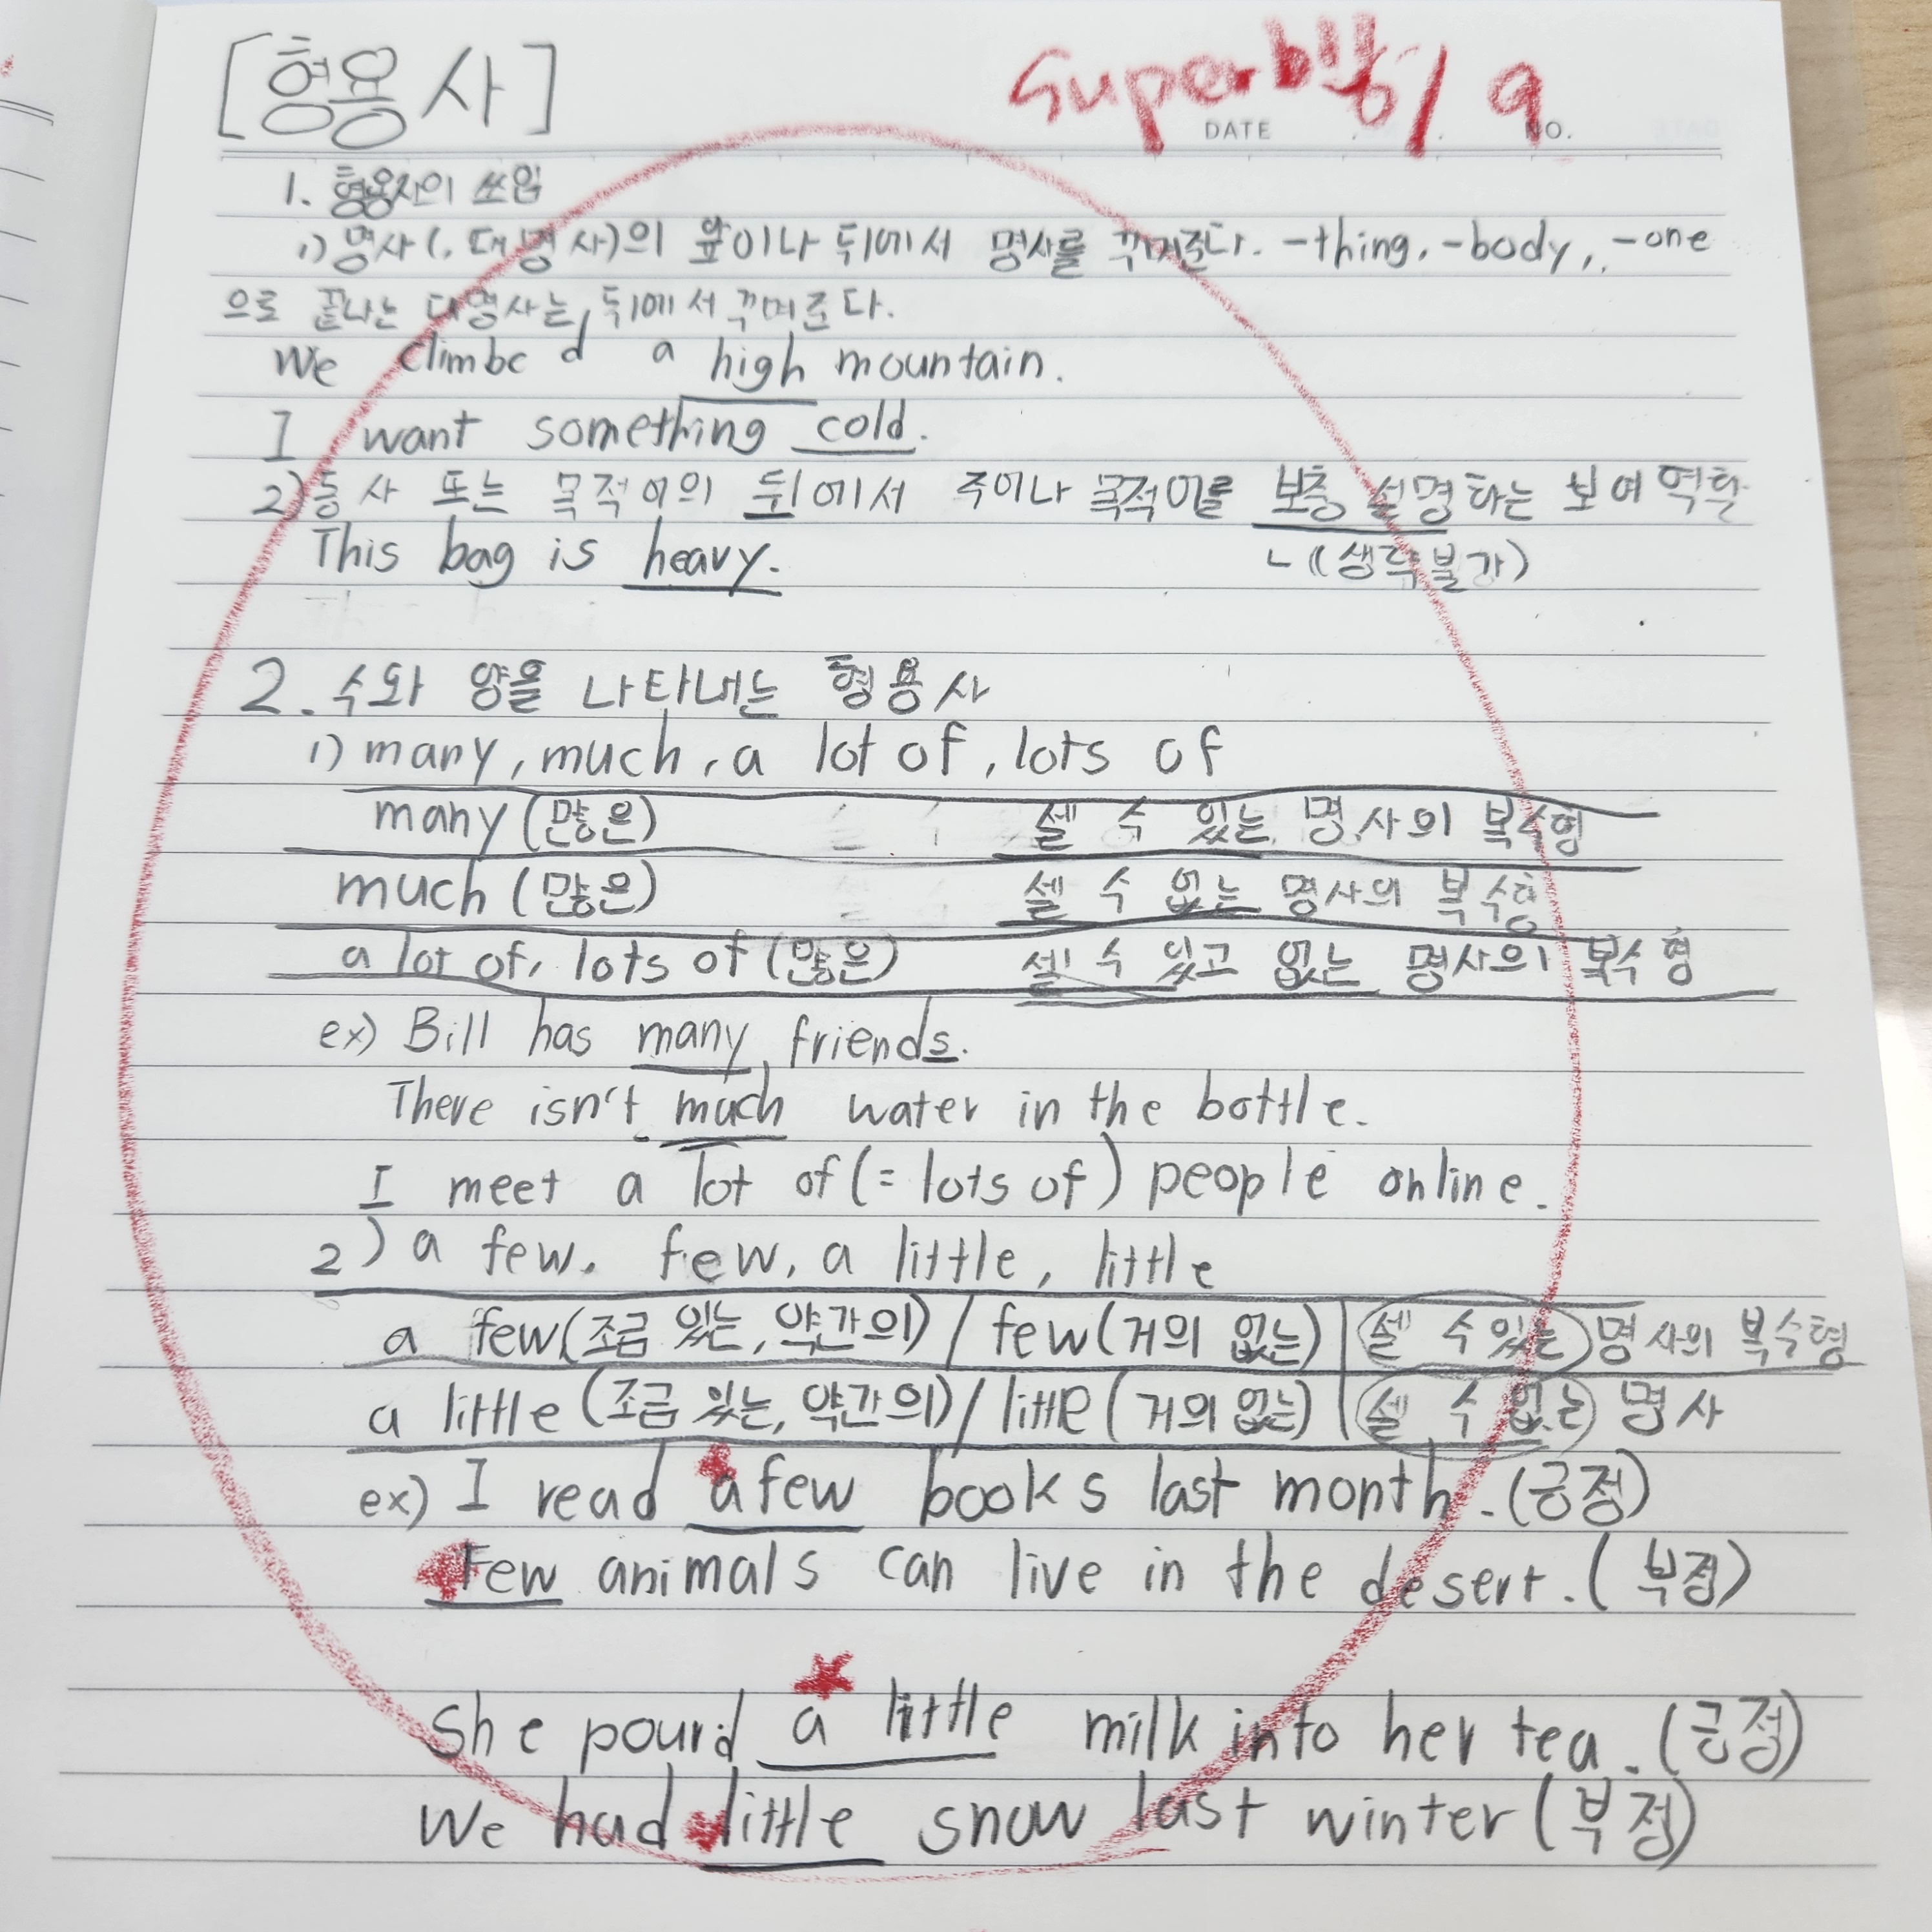 [형용사]
Superb방 / 9
DATE . . NO.
1. 형용사의 쓰임
1) 명사(, 대명사)의 앞이나 뒤에서 명사를 꾸며준다. -thing, -body, -one
으로 끝나는 대명사는 뒤에서 꾸며준다.
We climbed a high mountain.
I want something cold.
2) 동사 또는 목적어의 뒤에서 주어나 목적어를 보충 설명하는 보어 역할
This bag is heavy. ㄴ((생략불가)
2. 수와 양을 나타내는 형용사
1) many, much, a lot of, lots of
many (많은) 셀 수 있는 명사의 복수형
much (많은) 셀 수 없는 명사의 복수형
a lot of, lots of (많은) 셀 수 있고 없는 명사의 복수형
ex) Bill has many friends.
There isn't much water in the bottle.
I meet a lot of (= lots of) people online.
2) a few, few, a little, little
a few(조금 있는, 약간의) / few(거의 없는) | 셀 수 있는 명사의 복수형
a little (조금 있는, 약간의) / little (거의 없는) | 셀 수 없는 명사
ex) I read a few books last month. (긍정)
Few animals can live in the desert. (부정)
She pourd a little milk into her tea. (긍정)
We had little snow last winter (부정)